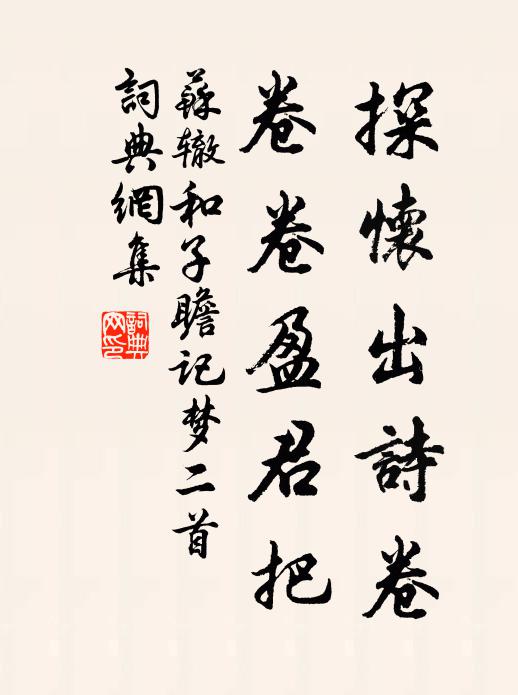 探懷出詩卷
卷卷盈君把
蘇辙和子瞻記梦二首
詞典網集
詞典網印